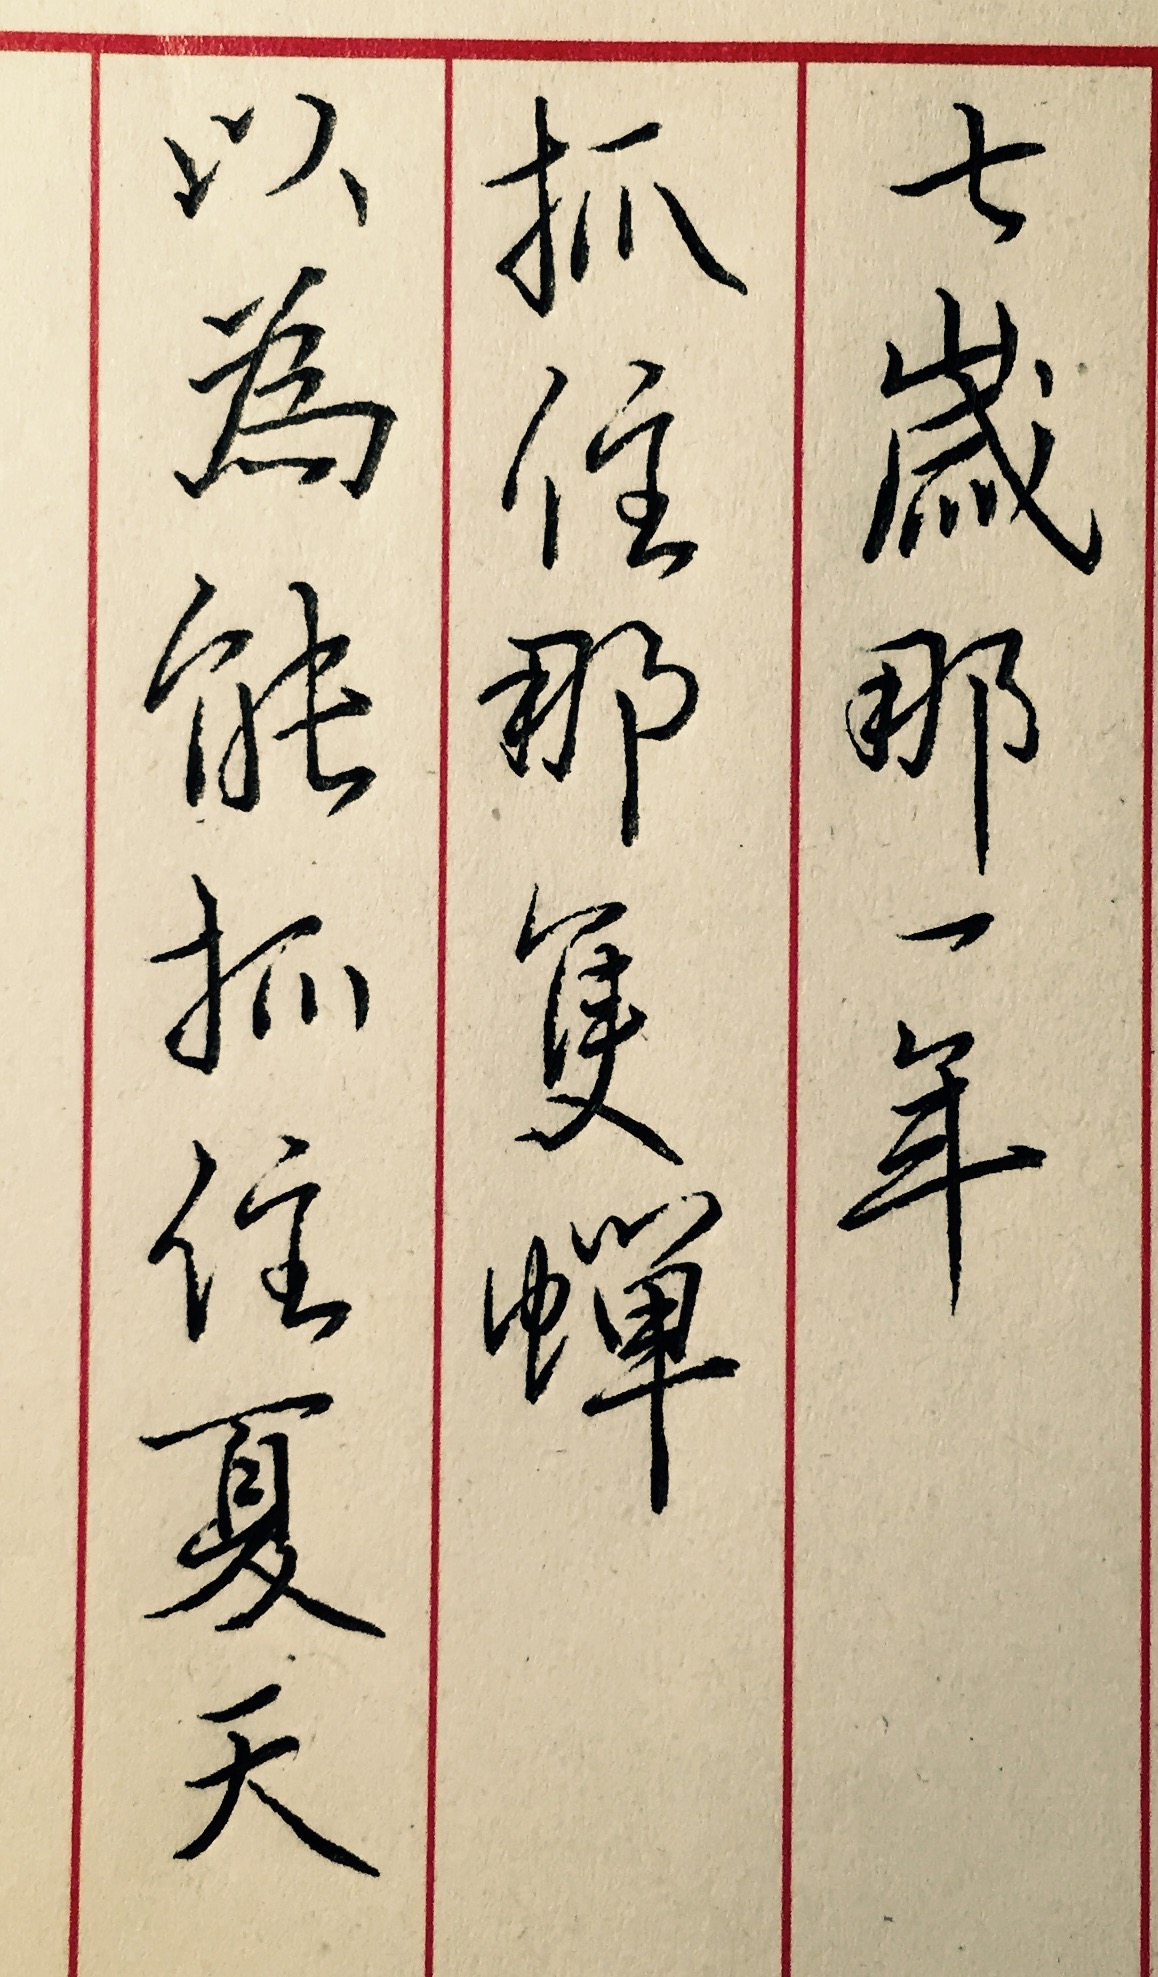 七歲那一年
抓住那隻蟬
以為能抓住夏天